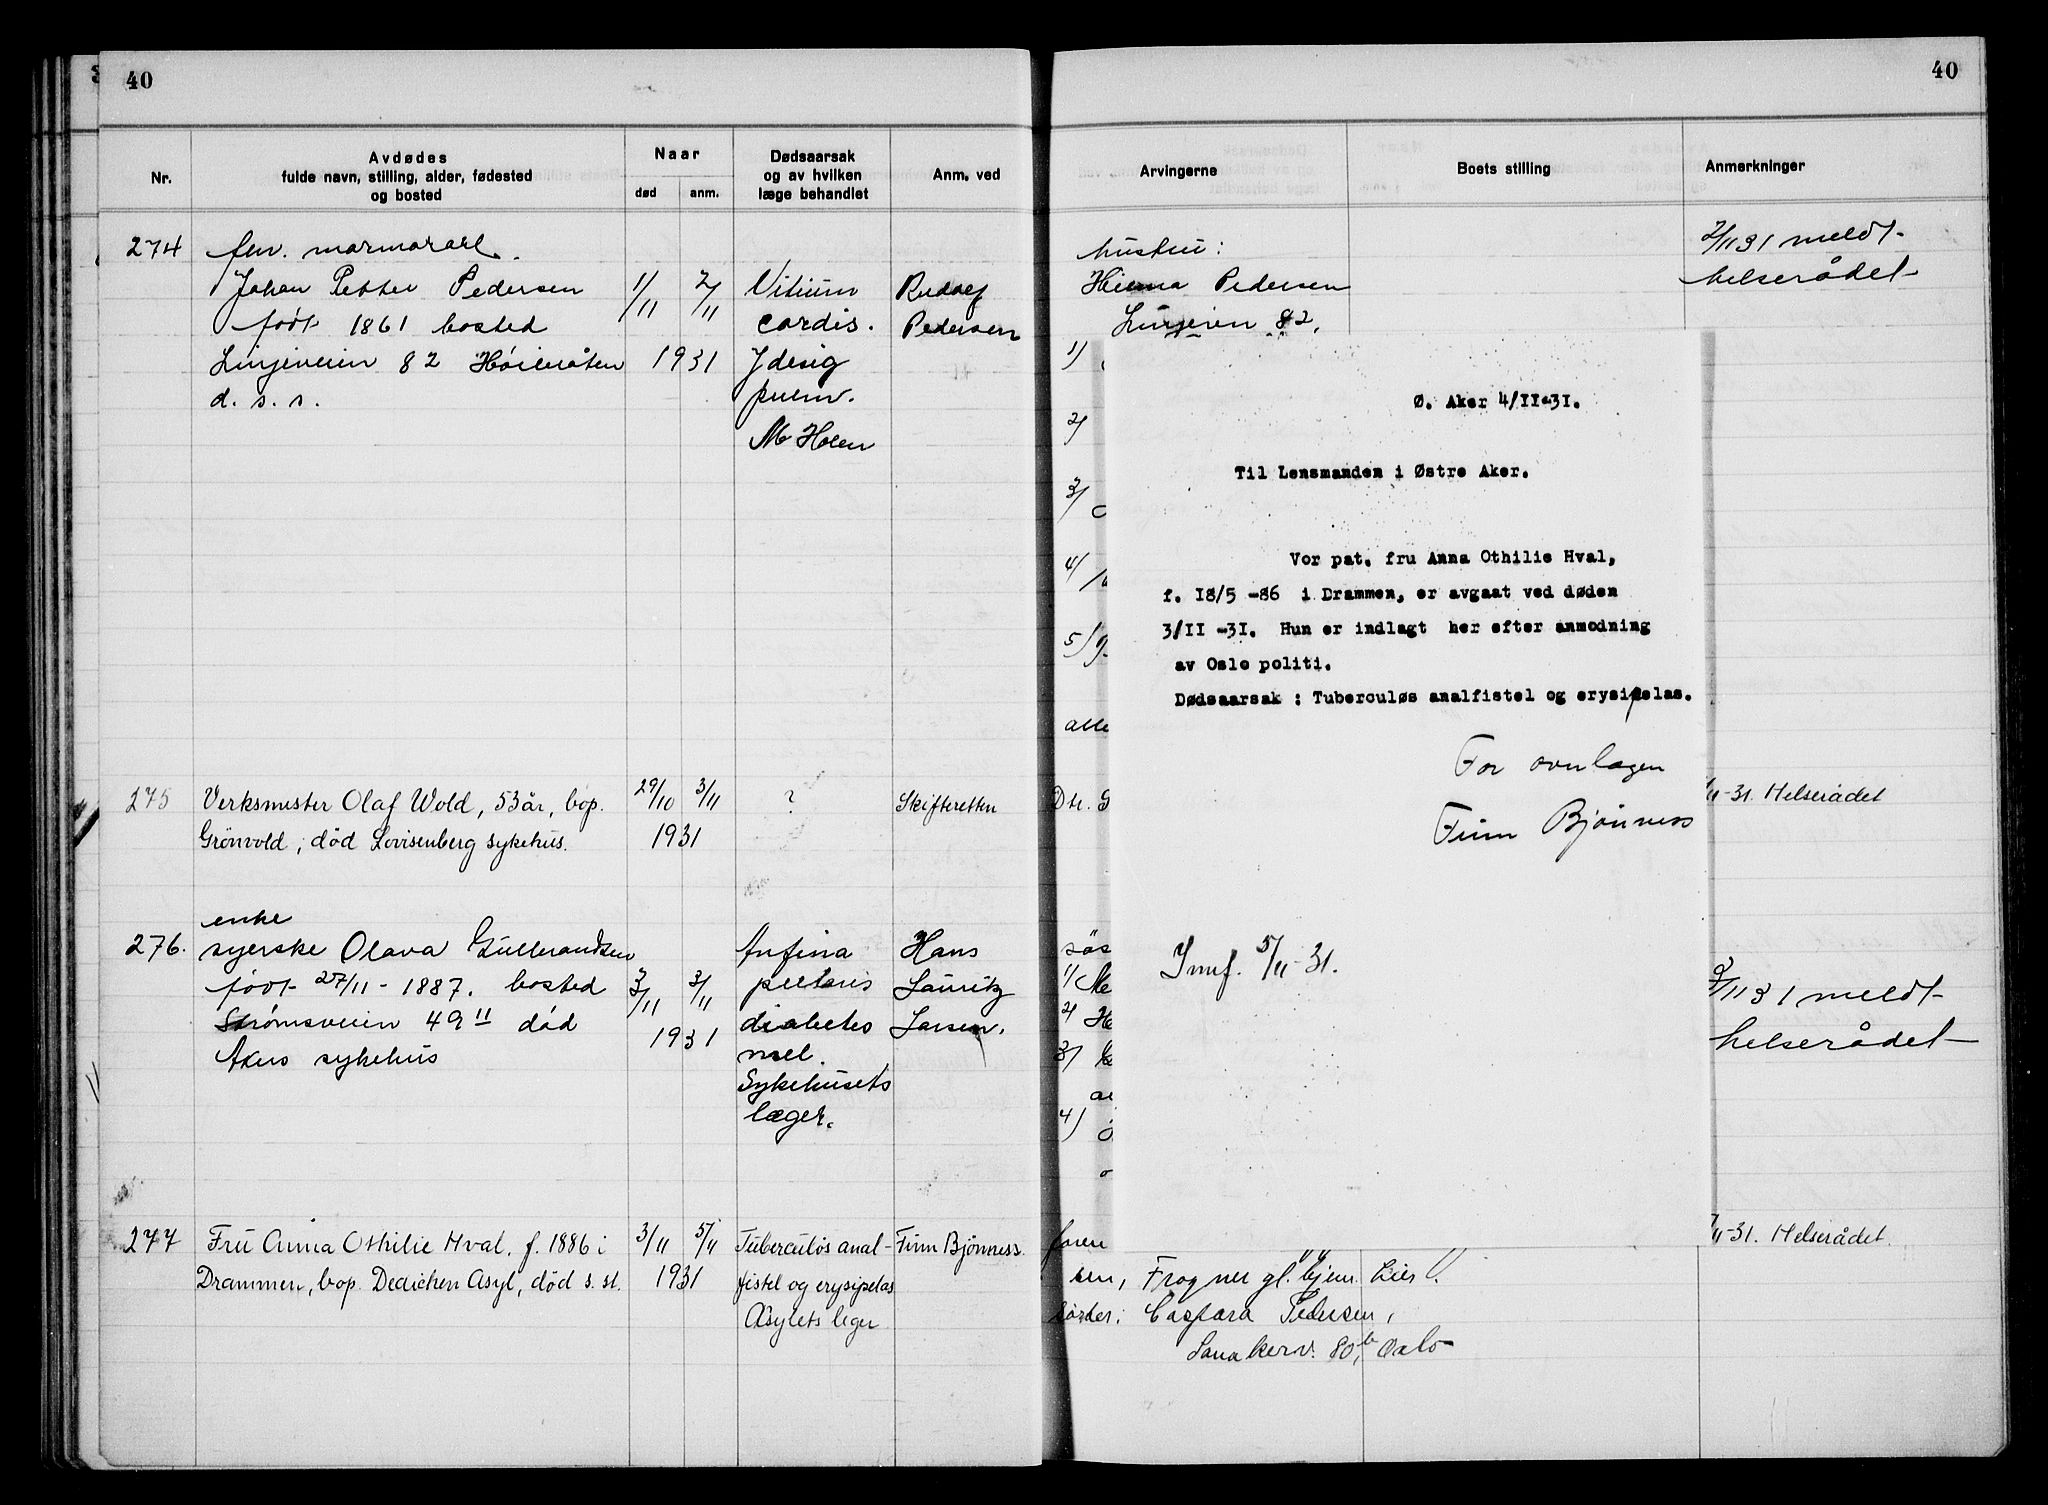 40
Nr.
Avdødes
fulde navn, stilling, alder, fødested
og bosted
Naar
død
anm.
Dødsaarsak
og av hvilken
læge behandlet
Anm. ved
274
Johan Petter Pedersen
født 1861 bosted
Linjeveien 82 Høibråten
d. s. s.
1/11
2/11
1931
Vitium
cordis.
M Holen
Rudolf
Pedersen
275
Verksmester Olaf Wold, 53 år, bop.
Grönvold, död Lovisenberg sykehus.
29/10
3/11
1931
?
Skifteretten
enke
276.
syerske Olava Gulbrandsen
født 27/11 - 1887. bosted
Strømsveien 49 II død
Akers sykehus
3/11
3/11
1931
Anfina
pectoris
diabetes
mel.
Sykehusets
læger.
Hans
Lauritz
Larsen.
277
Fru Anna Othilie Hval. f. 1886 i
Drammen, bop. Dedichen Asyl, död s. st.
3/11
5/11
1931
Tuberculös anal-
fistel og erysipelas
Asylets leger
Finn Bjönness.
40
Arvingerne
Boets stilling
Anmerkninger
hustru:
Pedersen
82.
2/11 31 meldt
helserådet
1/
2/
3/
4/
5/
alle
Ø. Aker 4/II-31.
Til Lensmanden i Østre Aker.
Vor pat. fru Anna Othilie Hval,
f. I8/5 -86 i Drammen, er avgaat ved døden
3/II -3I. Hun er indlagt her efter anmodning
av Oslo politi.
Dødsaarsak : Tuberculøs analfistel og erysipelas.
For overlægen
Finn Bjönness
Innf. 5/11-31.
11-31. Helserådet
søs
1/
2/
3/
4/
3/11 31 meldt
helserådet
11-31. Helserådet.
Frogner gl. hjem Lier
Caspara Pedersen,
80 b, Oslo